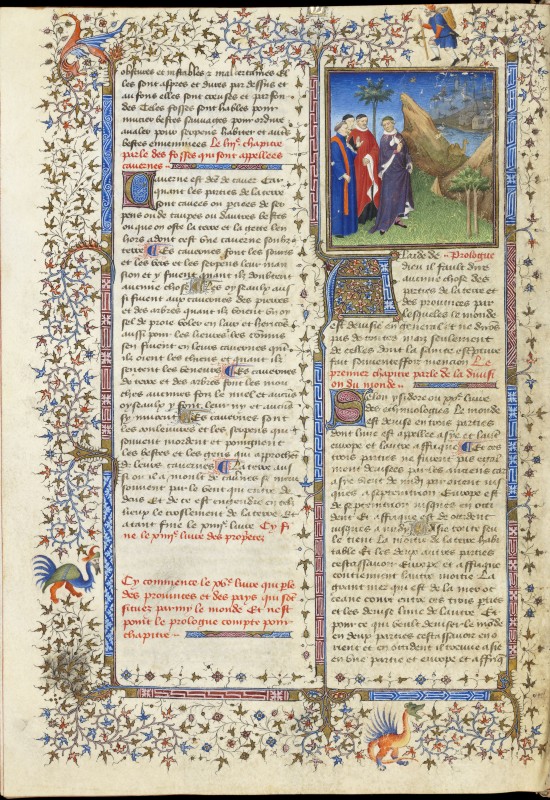 obscures et instables & mal certaines Et
les sont aspres et dures par dessus et
au fons elles sont creuses et parfon
des Teles fosses sont hables pour
mucier bestes sauvaiges pour ordure
avaler pour serpens habiter et autres
bestes envenimees Le chapitre
parle des fosses qui sont appellees
cavernes
Caverne est dit de caver Car
quant les parties de la terre
sont cavees ou percees de ser
pens ou de taupes ou dautres bestes
ou que on oste la terre et la gette len
hors adont cest une caverne soubz
terre Es cavernes sont les souris
et les vers et les serpens leur man
sion et y fuient quant ilz doubtent
aucune chose Les oyseaulx aussi
si fuient aux cavernes des pierres
et des arbres quant ilz voient un oy
sel de proie voler en lair et hericos
aussi pour les lievres les connins
sen fuient en leurs cavernes quant
ilz oient les chiens et quant ilz
sentent les veneurs Es cavernes
de terre et des arbres sont les mou
ches aucunes son le miel et aucuns
oyseaulx y font leur ny et aucuns
sy mucent Es cavernes sont
les couleuvres et les serpens qui
souvent mordent et poingnent
les bestes et les gens qui approchent
de leurs cavernes La terre aussi
ou il a moult de cavernes se meut
souvent par le vent qui entre de
dens Et de ce est engendre en tel
lieux le croslement de la terre Et
atant fine le livre Cy fi
ne le livre des proprietez
Cy commence le livre qui parle
des provinces et des pays qui sont
situez parmy le monde Et nest
point le prologue compte pour
chapitre
A laide de Prologue
dieu il fault dire
aucune chose des
parties de la terre et
des provinces par
lesquelles le monde
est devise en general et ne dirons
pas de toutes mais seulement
de celles dont la sainte escripture
fait souventeffoiz mencion Le
premier chapitre parle de la divisi
on du monde
Selon ysidore ou livre
des ethimologies Le monde
est devise en trois parties
dont lune est appellee asye et lautre
europe et lautre affrique Et ces
trois parties ne furent pas egal
ment devisees par les anciens car
asye vient de midi par orient jus
ques a septentrion Europe est
de septentrion jusques en occi
dent Et affrique est de occident
jusques a midi Asie toute seu
le tient La moitie de la terre habi
table Et les deux autres parties
cestassavoir Europe et affrique
contiennent lautre moitie La
grant mer qui est dit la mer oc
ceane court entre ces trois parties
et les devise lune de lautre Et
pour ce qui veult deviser le monde
en deux parties cestassavoir en o
rient et en occident il trouve asie
en une partie et europe et affriq